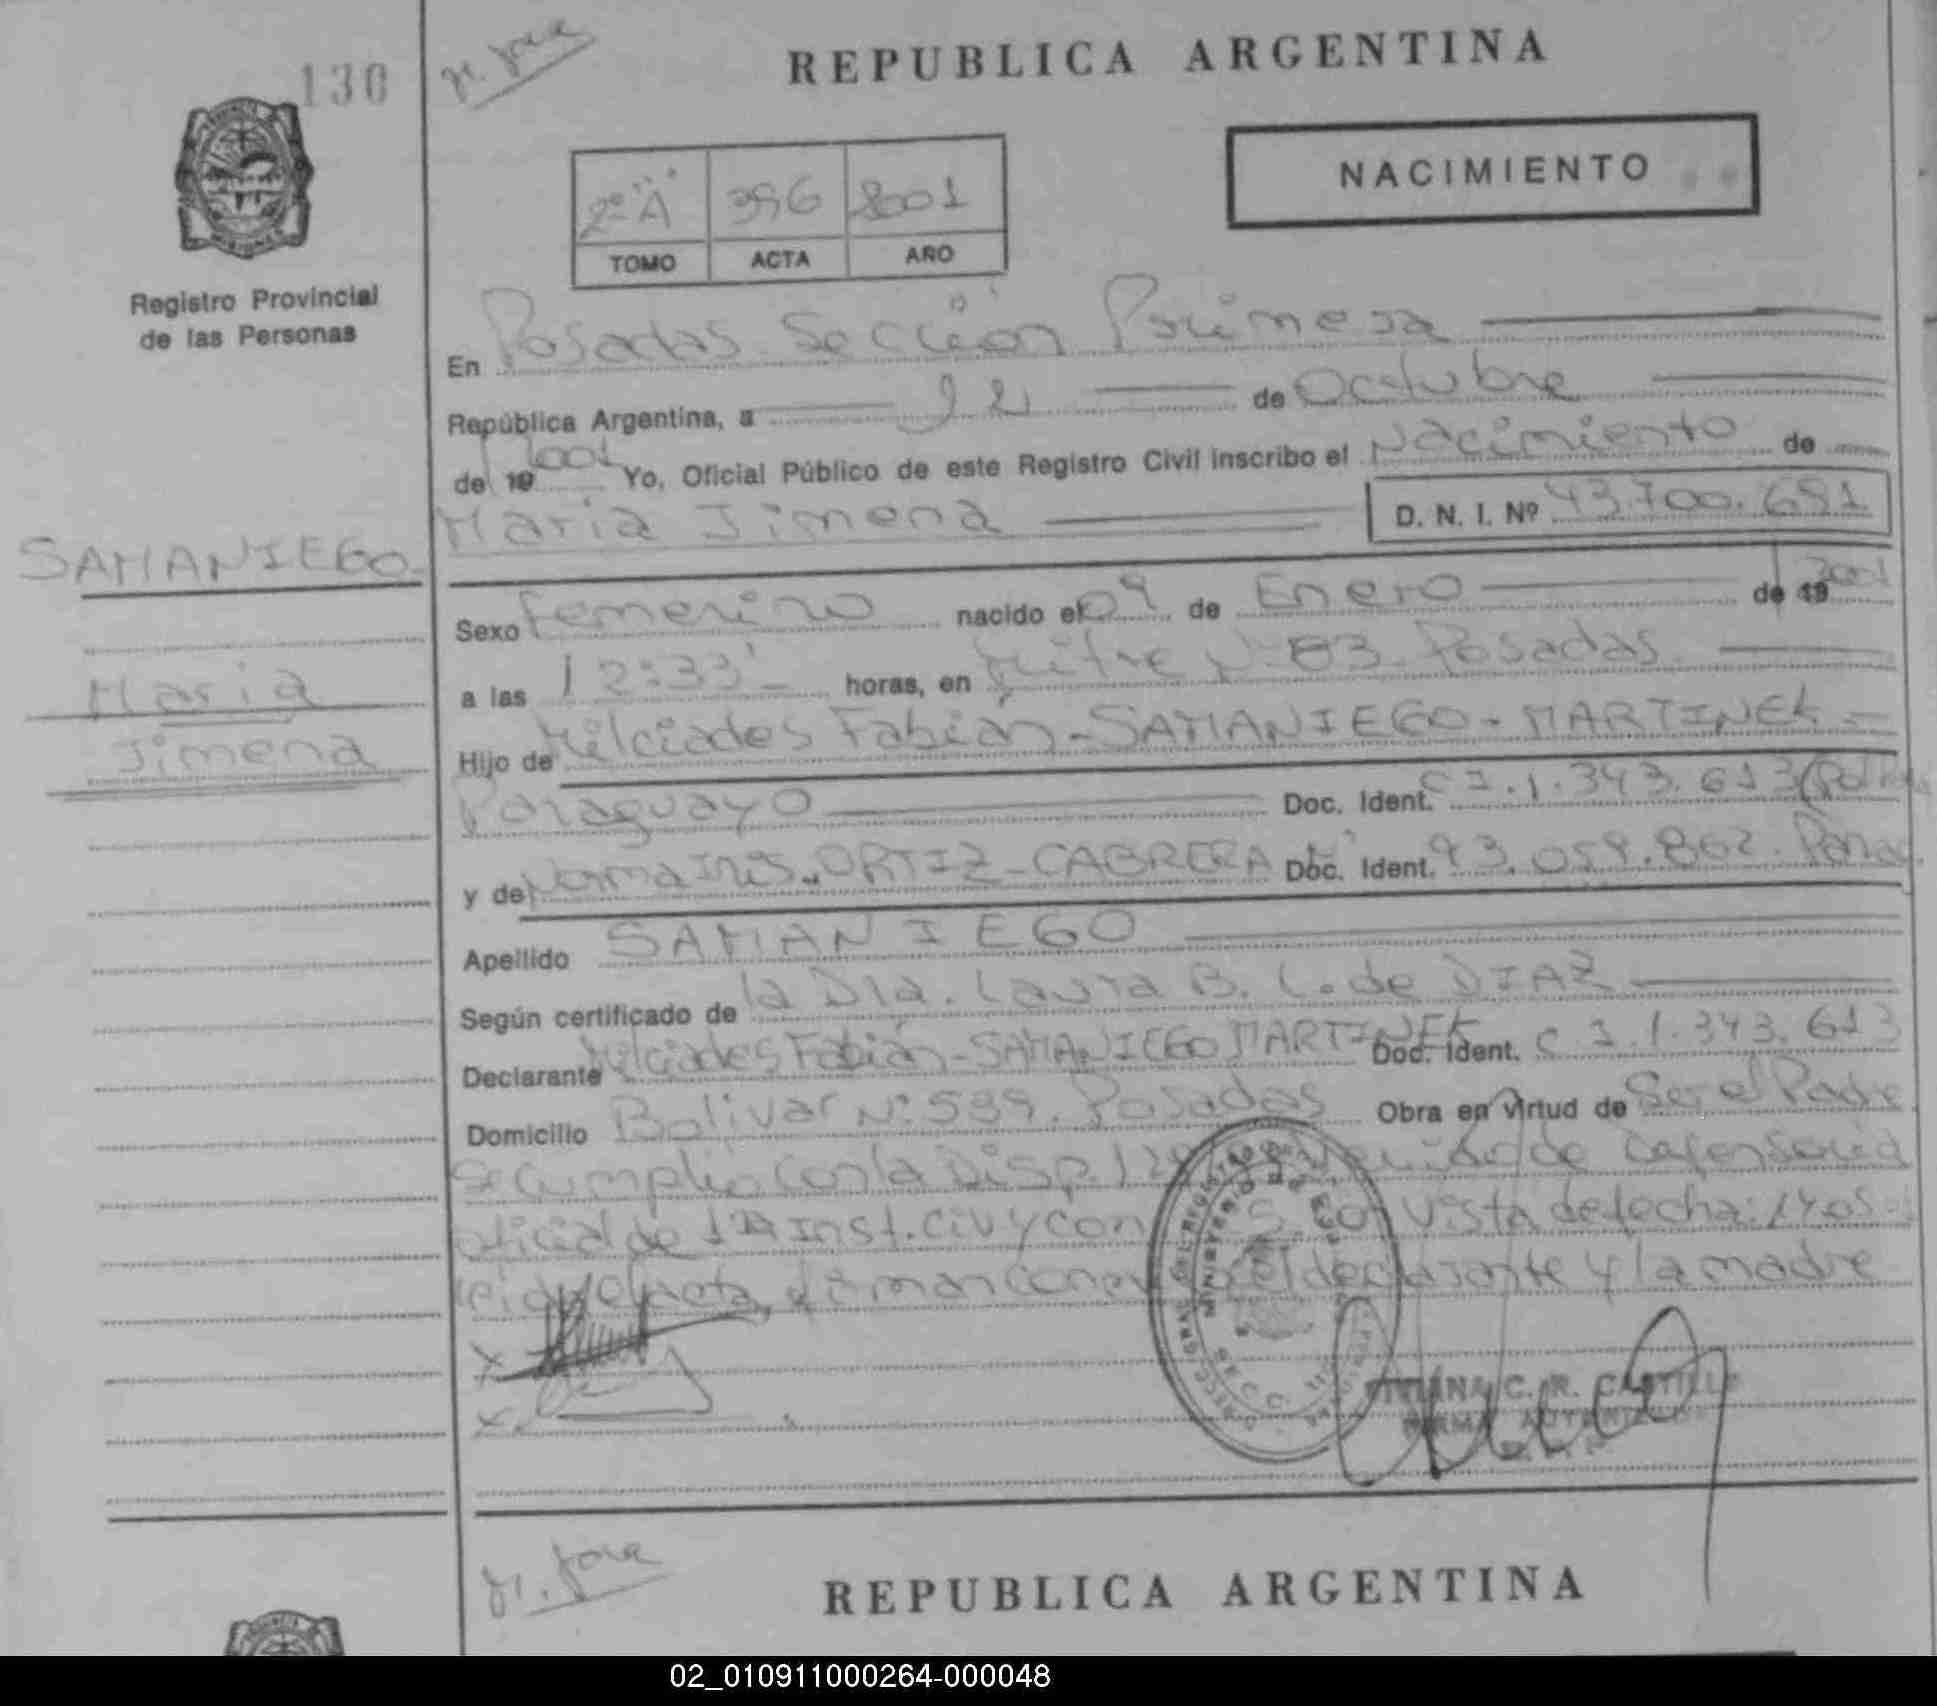 130
REPUBLICA ARGENTINA
NACIMIENTO
2º "A" 396 2001
TOMO ACTA AÑO
Registro Provincial
de las Personas
En Posadas Sección Primera
República Argentina, a 12 de Octubre
de 19 2001 Yo, Oficial Público de este Registro Civil inscribo el Nacimiento de
Maria Jimena D. N. I. Nº 43.700.691
SAMANIEGO
Maria
Jimena
Sexo Femenino nacido el 09 de Enero de 19 2001
a las 12:33' horas, en Mitre Nº 83. Posadas
Hijo de Milciades Fabián - SAMANIEGO - MARTINEZ
Paraguayo Doc. Ident. C I. 1.343.613
y de Norma Inés ORTIZ - CABRERA Doc. Ident. 93.059.862.
Apellido SAMANIEGO
Según certificado de la Dra. Laura B. L. de DIAZ
Declarante Milciades Fabián - SAMANIEGO MARTINEZ Doc. Ident. C I. 1.343.613
Domicilio Bolivar Nº 539. Posadas Obra en virtud de Ser el Padre
Se cumplió con la Disp. de Defensoria
oficial de 1ª Inst. Civ y Com vista de fecha: 14.05
el acta, firman el declarante y la madre
X
X
C. R. CASTILLO
REPUBLICA ARGENTINA
02_010911000264-000048